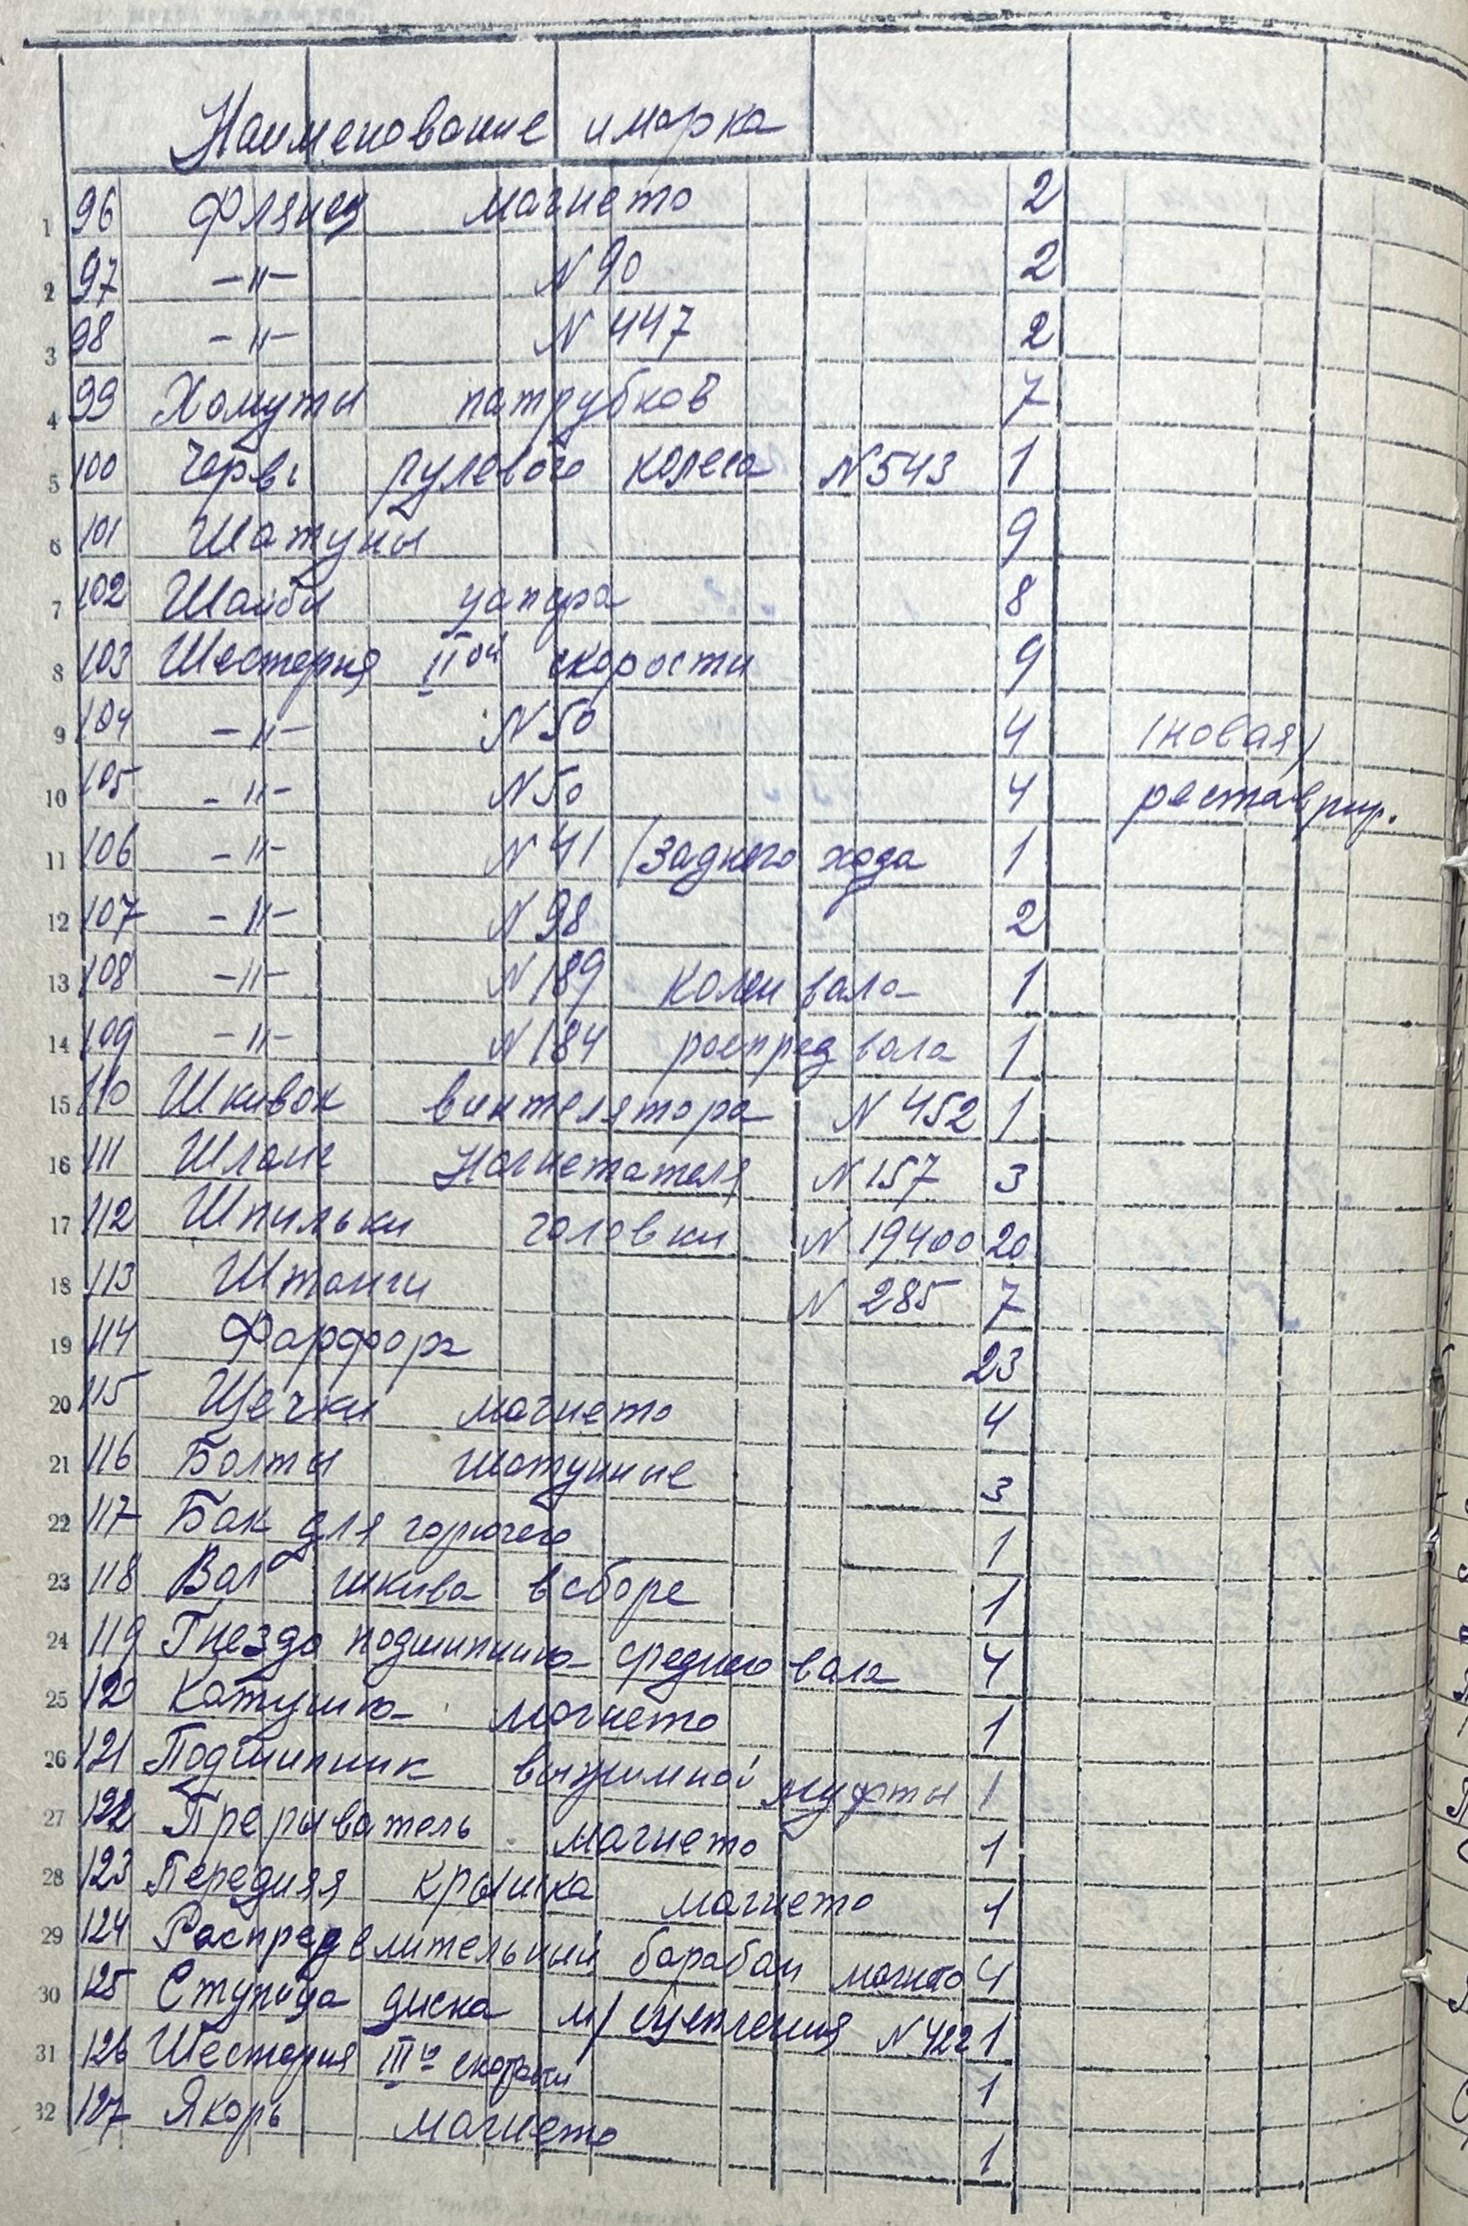 Наименование и марка
1 96 Фланец магнето 2
2 97 -"- N 90 2
3 98 -"- N 447 2
4 99 Хомуты патрубков 7
5 100 Червь рулевого колеса N 543 1
6 101 Шатуны 9
7 102 Шайбы цапфра 8
8 103 Шестерня II ой скорости 9
9 104 -"- N 50 4 (новая)
10 105 -"- N 50 4 реставрир.
11 106 -"- N 41 (заднего хода 1
12 107 -"- N 98 2
13 108 -"- N 189 колен вала 1
14 109 -"- N 184 распред вала 1
15 110 Шкивок винтелятора N 452 1
16 111 Шланг Нагнетателя N 157 3
17 112 Шпильки головки N 19400 20
18 113 Штанги N 285 7
19 114 Фарфора 23
20 115 Щечки магнето 4
21 116 Болты шатунные 3
22 117 Бак для горючего 1
23 118 Вал шкива в сборе 1
24 119 Гнездо подшипника среднего вала 4
25 120 Катушка магнето 1
26 121 Подшипник выжимной муфты 1
27 122 Прерыватель магнето 1
28 123 Передняя крышка магнето 1
29 124 Распределительный барабан магнето 4
30 125 Ступица диска м/сцепления N 422 1
31 126 Шестерня III й скорости 1
32 127 Якорь магнето 1